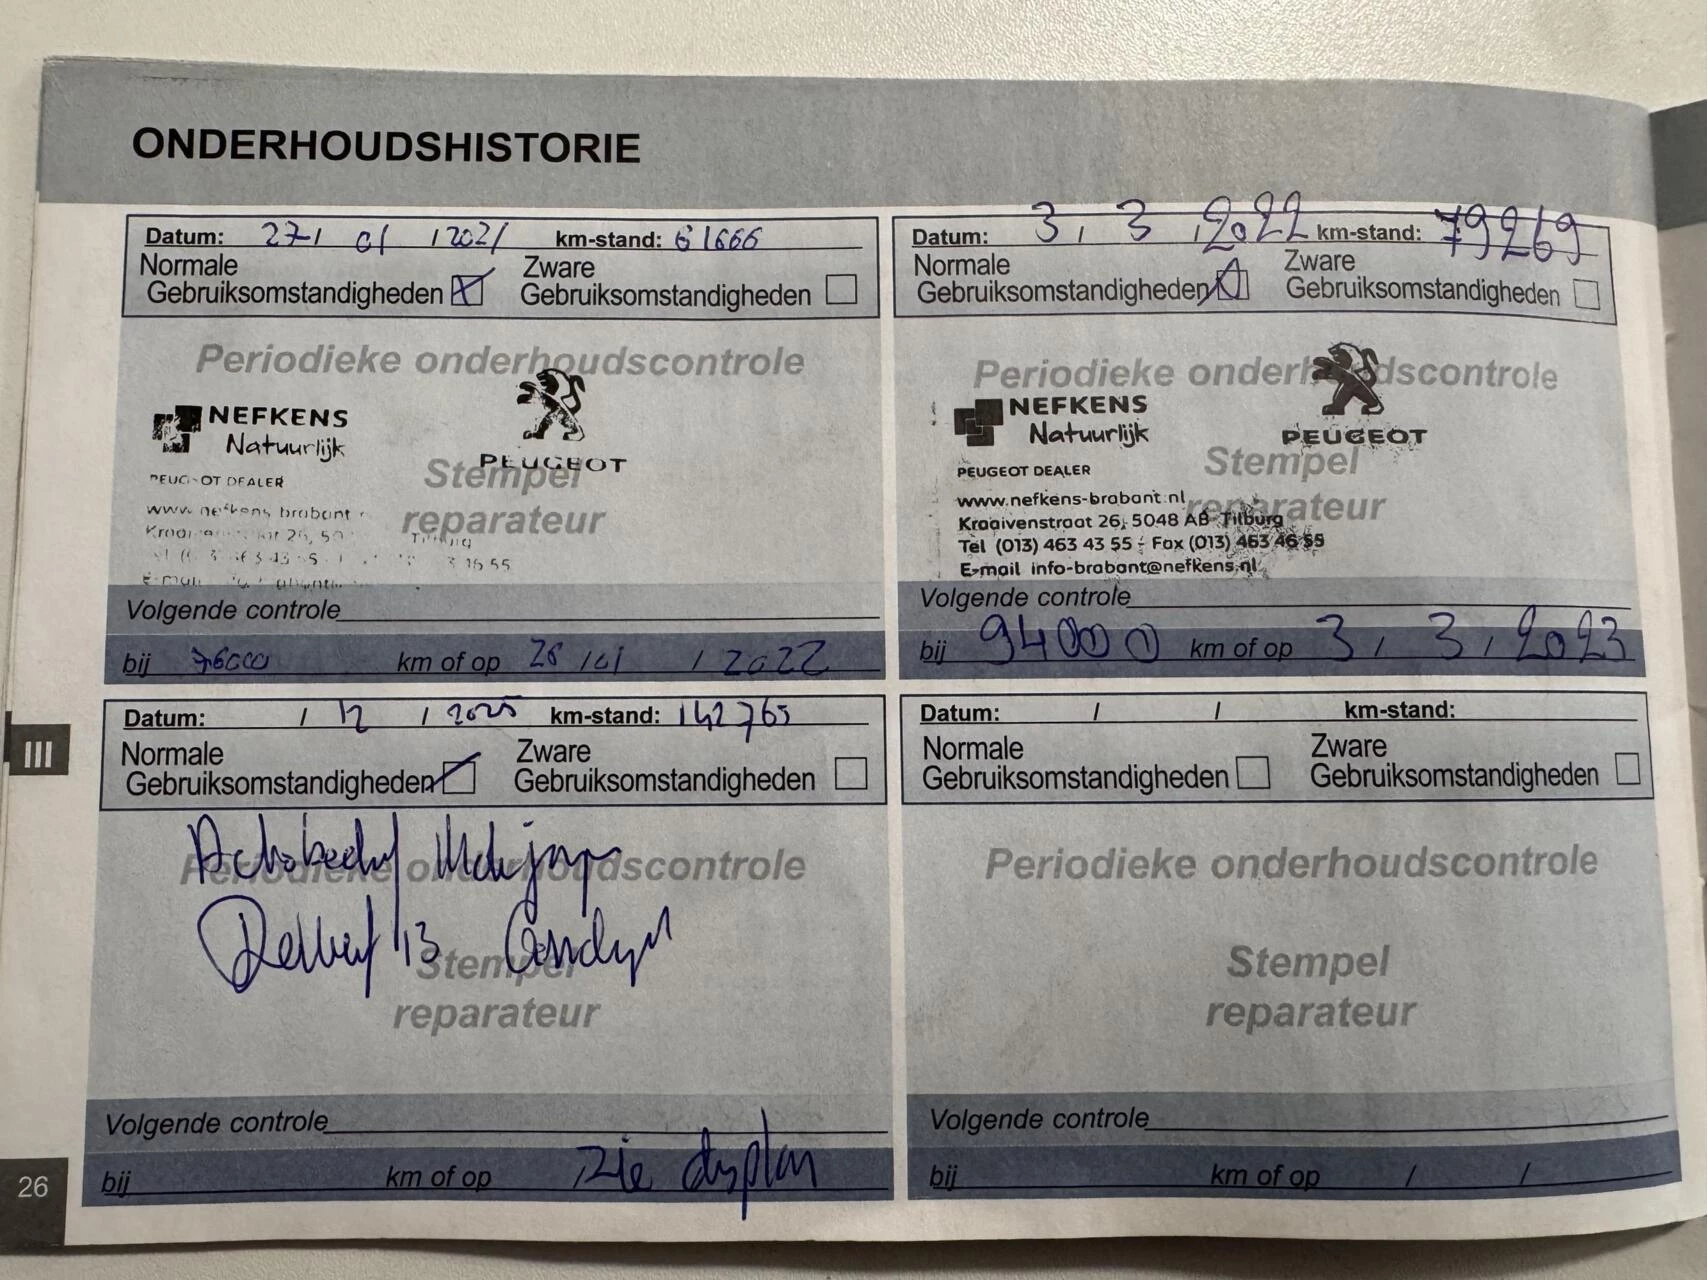 ONDERHOUDSHISTORIE
Datum: 27 / 01 / 2021 km-stand: 61666
Normale Gebruiksomstandigheden
Zware Gebruiksomstandigheden
Periodieke onderhoudscontrole
NEFKENS
Natuurlijk
PEUGEOT
PEUGEOT DEALER
Stempel
reparateur
www.nefkens-brabant
Volgende controle
bij 76000 km of op 26 / 01 / 2022
Datum: 3 / 3 / 2022 km-stand: 79269
Normale Gebruiksomstandigheden
Zware Gebruiksomstandigheden
Periodieke onderhoudscontrole
NEFKENS
Natuurlijk
PEUGEOT
PEUGEOT DEALER
Stempel
reparateur
www.nefkens-brabant.nl
Kraaivenstraat 26, 5048 AB Tilburg
Tel (013) 463 43 55 - Fax (013) 463 46 55
E-mail info-brabant@nefkens.nl
Volgende controle
bij 94000 km of op 3 / 3 / 2023
III
Datum: / 12 / 2025 km-stand: 142765
Normale Gebruiksomstandigheden
Zware Gebruiksomstandigheden
Periodieke onderhoudscontrole
13
Stempel
reparateur
Volgende controle
bij km of op zie
Datum: / / km-stand:
Normale Gebruiksomstandigheden
Zware Gebruiksomstandigheden
Periodieke onderhoudscontrole
Stempel
reparateur
Volgende controle
bij km of op / /
26